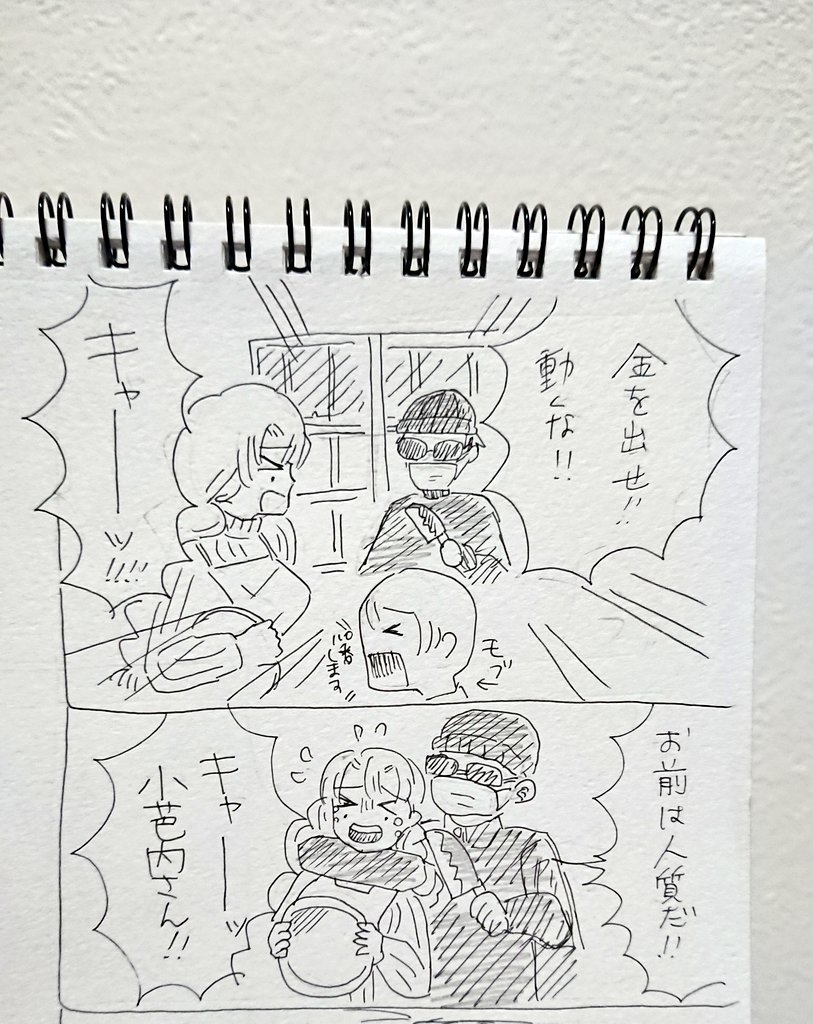 金を出せ!!
動くな!!
キャーーッ!!!!
モブ
お前は人質だ!!
キャーーッ
小芭内さん!!